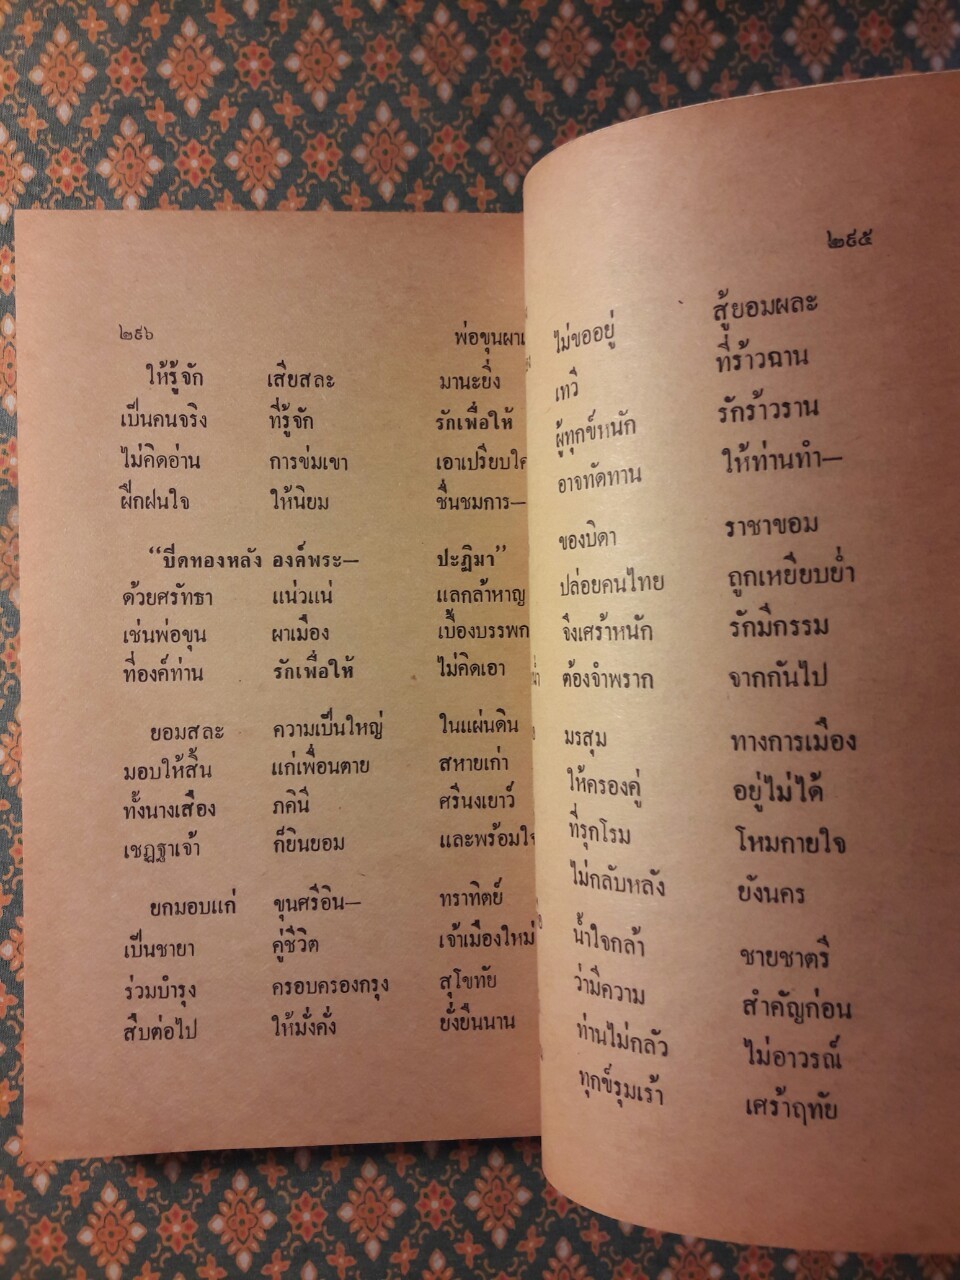 ๒๙๖
พ่อขุนผาเ
ให้รู้จัก เสียสละ มานะยิ่ง
เป็นคนจริง ที่รู้จัก รักเพื่อให้
ไม่คิดอ่าน การข่มเขา เอาเปรียบใค
ฝึกฝนใจ ให้นิยม ชื่นชมการ—
“ปิดทองหลัง องค์พระ— ปะฏิมา”
ด้วยศรัทธา แน่วแน่ แลกล้าหาญ
เช่นพ่อขุน ผาเมือง เบื้องบรรพก
ที่องค์ท่าน รักเพื่อให้ ไม่คิดเอา
ยอมสละ ความเป็นใหญ่ ในแผ่นดิน
มอบให้สิ้น แก่เพื่อนตาย สหายเก่า
ทั้งนางเสือง ภคินี ศรีนงเยาว์
เชฏฐาเจ้า ก็ยินยอม และพร้อมใจ
ยกมอบแก่ ขุนศรีอิน— ทราทิตย์
เป็นชายา คู่ชีวิต เจ้าเมืองใหม่
ร่วมบำรุง ครอบครองกรุง สุโขทัย
สืบต่อไป ให้มั่งคั่ง ยั่งยืนนาน
๒๙๕
ไม่ขออยู่ สู้ยอมผละ
เทวี ที่ร้าวฉาน
ผู้ทุกข์หนัก รักร้าวราน
อาจทัดทาน ให้ท่านทำ—
ของบิดา ราชาขอม
ปล่อยคนไทย ถูกเหยียบย่ำ
จึงเศร้าหนัก รักมีกรรม
ต้องจำพราก จากกันไป
มรสุม ทางการเมือง
ให้ครองคู่ อยู่ไม่ได้
ที่รุกโรม โหมกายใจ
ไม่กลับหลัง ยังนคร
น้ำใจกล้า ชายชาตรี
ว่ามีความ สำคัญก่อน
ท่านไม่กลัว ไม่อาวรณ์
ทุกข์รุมเร้า เศร้าฤทัย